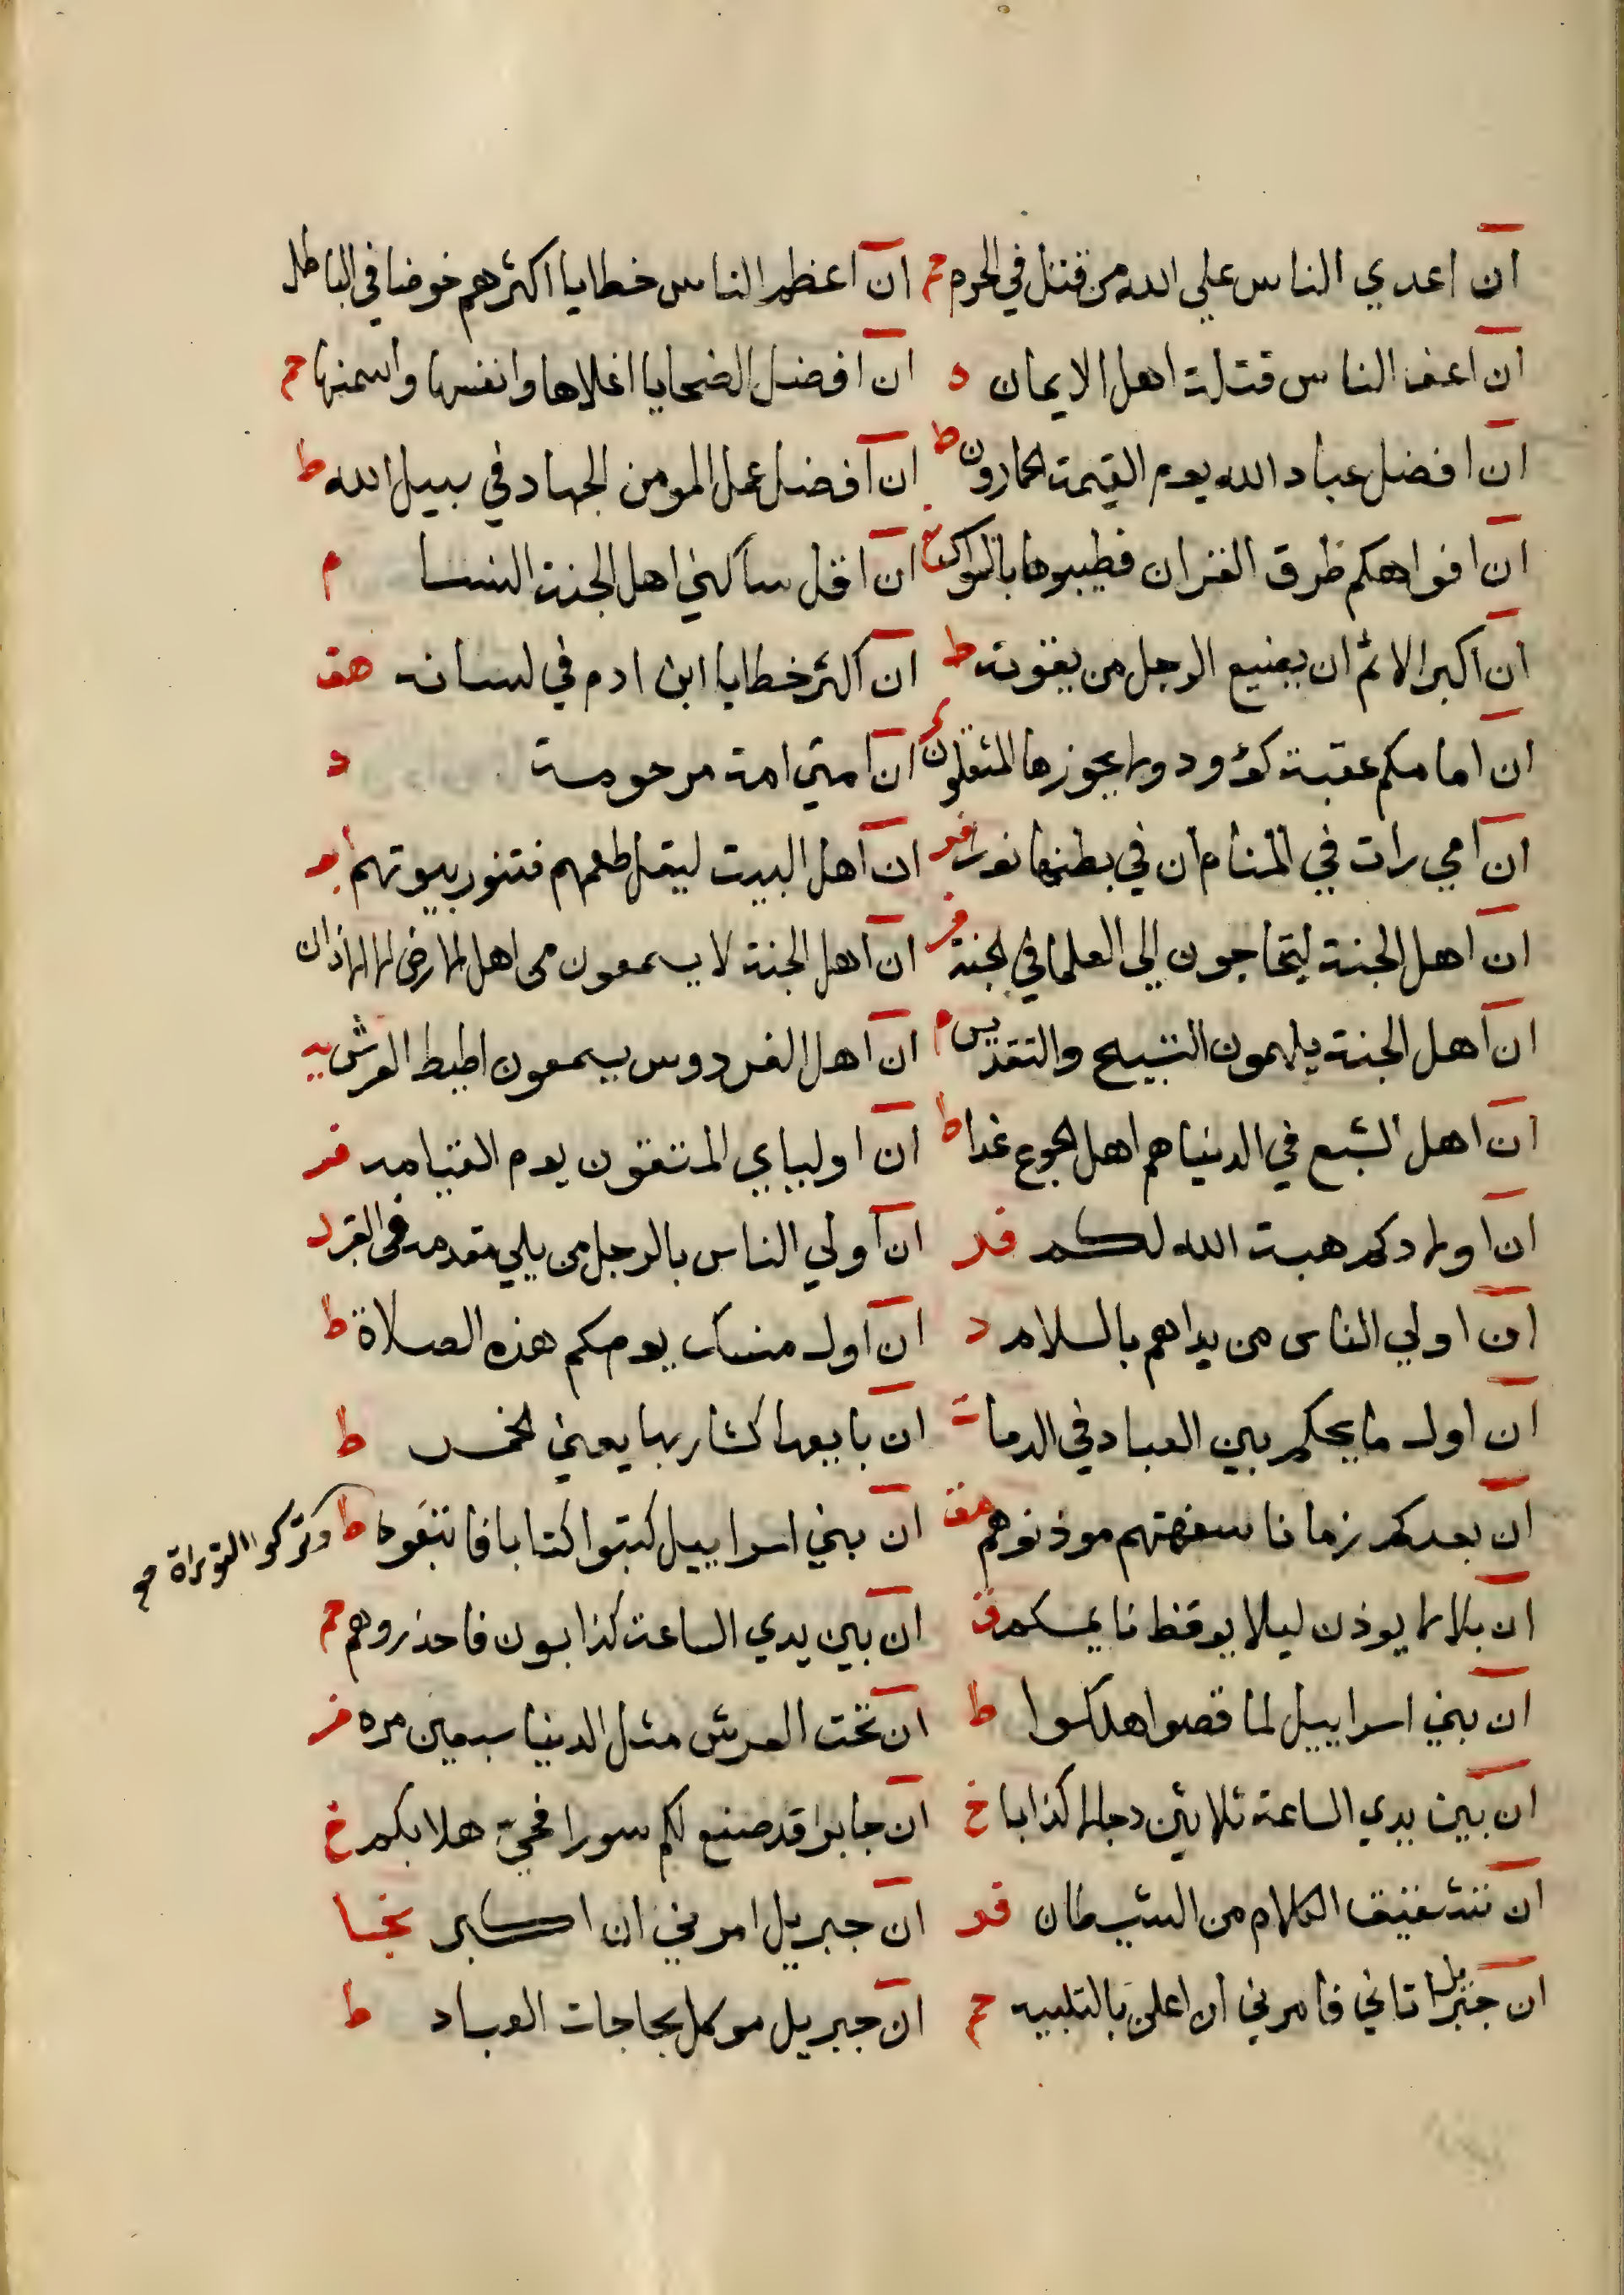 ان اعدي الناس علي الله من قتل في الحرم حم ان اعظم الناس خطايا اكثرهم خوضا في الباطل
ان اعف الناس قتلة اهل الايمان د ان افضل الضحايا اغلاها وانفسها واسمنها حم
ان افضل عباد الله يوم القيمة الحمادون ط ان افضل عمل المومن الجهاد في سبيل الله ط
ان افواهكم طرق القران فطيبوها بالسواك ان اقل ساكني اهل الجنة النسا م
ان اكبر الاثم ان يضيع الرجل من يقوته ط ان اكثر خطايا ابن ادم في لسانه هق
ان امامكم عقبة كؤود ولا يجوزها المثقلون ان امتي امة مرحومة د
ان امي رات في المنام ان في بطنها نورا فر ان اهل البيت ليقل طعمهم فتنور بيوتهم
ان اهل الجنة ليتحاجون الي العلما في الجنة فر ان اهل الجنة لا يسمعون من اهل الارض الا الاذان
ان اهل الجنة يلهمون التسبيح والتقديس م ان اهل الفردوس يسمعون اطيط العرش
ان اهل الشبع في الدنيا هم اهل الجوع غدا ط ان اوليايي المتقون يوم القيامه فر
ان اولادكم هبة الله لكم فر ان اولي الناس بالرجل من يلي مقدمه في القبر د
ان اولي الناس من بداهم بالسلام د ان اول منسك يومكم هذه الصلاة ط
ان اول ما يحكم بين العباد في الدما ت ان بايعها كشاربها يعني الخمر ط
ان بعدكم زمانا سفهتهم موذنوهم هق ان بني اسراييل كتبوا كتابا فاتبعوه ط وتركوا التوراة صح
ان بلالا يوذن ليلا يوقظ نايمكم ق ان بين يدي الساعة كذابون فاحذروهم حم
ان بني اسراييل لما قصوا هلكوا ط ان تحت العرش مثل الدنيا سبعين مره فر
ان بين يدي الساعة ثلاثين دجالا كذابا خ ان جابرا قد صنع لكم سورا فحي هلا بكم خ
ان تشقيق الكلام من الشيطان فر ان جبريل امرني ان اكبر
ان جبريل اتاني فامرني ان اعلن بالتلبيه حم ان جبريل موكل بحاجات العباد ط